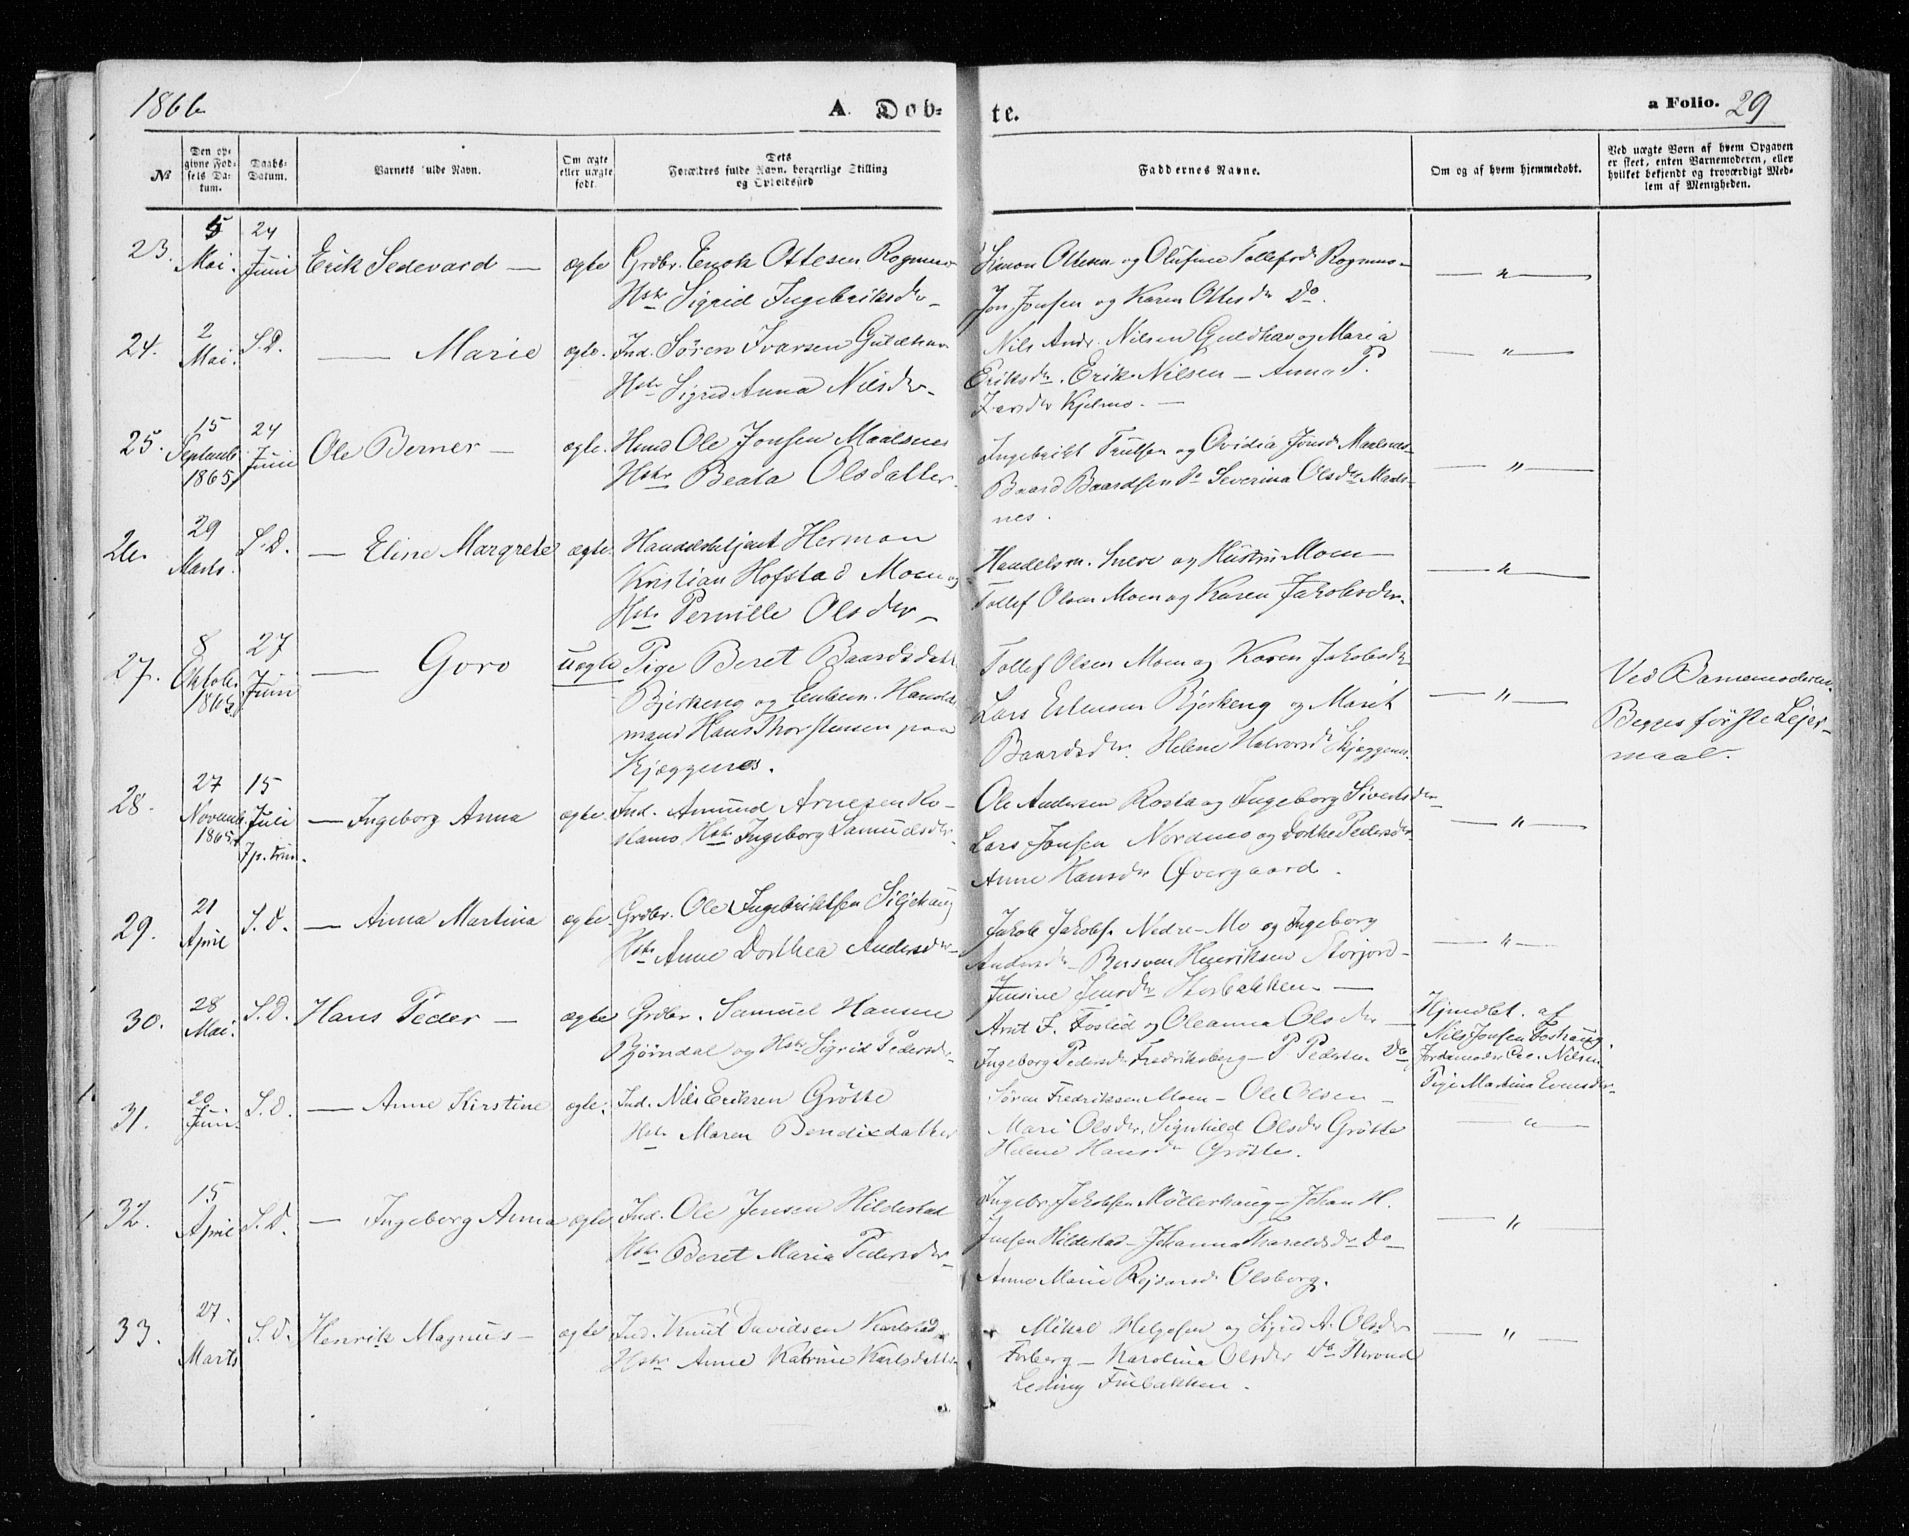 1866
A. Døb-
te.
a Folio. 29
№
Den op-
givne Fød-
sels Da-
tum.
Daabs-
Datum.
Barnets fulde Navn.
Om ægte
eller uægte
født.
Dets
Forældres fulde Navn, borgerlige Stilling
og Opholdssted
Faddernes Navne.
Om og af hvem hjemmedøbt.
Ved uægte Børn af hvem Opgaven
er skeet, enten Barnemoderen, eller
hvilket bekjendt og troværdigt Med-
lem af Menigheden.
23. 5 Mai. 24 Juni Erik Sedevard — ægte Grdbr. Enok Ottesen Rognmo
Hstr Sigrid Ingebriksdr —
Simon Ottesen og Olufine Tollefsdr Rognmo —
Jon Jonsen og Karen Ottesdr Do.
— " —
24. 2 Mai. S.D. — Marie ægte. Ind. Søren Ivarsen Guldhav
Hstr Sigrid Anna Nilsdr —
Nils Andr. Nilsen Guldhav og Maria
Eriksdr. Erik Nilsen — Anna P.
Kjelmo. —
— " —
25. 15 Septemb. 1865 24 Juni Ole Berner — ægte. Hmd Ole Jonsen Maalsnes
Hstr Beata Olsdatter.
Ingebrikt Trulsen og Ovidia Jonsdr Maalsnes —
Baard Baardsen Do Severina Olsdr Maals-
nes.
— " —
26. 29 Marts. S.D. — Eline Margrete ægte. Handelsbetjent Herman
Kristian Hofstad Moen og
Hstr Pernille Olsdr —
Handelsm. og Hustru Moen —
Tollef Olsen Moen og Karen Jakobsdr.
— " —
27. 8 Oktob. 1865 27 Juni — Goro uægte Pige Beret Baardsdatt
Bjerkeng og Enkem. Handels
mand Hans Thorstensen paa
Kjæggenes.
Tollef Olsen Moen og Karen Jakobsdr
Lars Estensen Bjerkeng og Marit
Baardsdr. Helene Halvorsdr Kjæggenes.
— " —
Ved Barnemoderen.
Begges første Lejer-
maal.
28. 27 Novemb. 1865 15 Juli 7 p. trin. — Ingeborg Anna ægte Ind. Amund Arnesen Ro-
stamo Hstr Ingeborg Samuelsdr.
Ole Andersen Rosta og Ingeborg Sivertsdr —
Lars Jonsen Nordmo og Dorthe Pedersdr
Anne Hansdr Øvergaard.
— " —
29. 21 April S.D. — Anna Martina ægte. Grdbr. Ole Ingebriktsen Siljehaug
Hstr Anne Dorthea Andersdr —
Jakob Jakobs. Nedre-Mo og Ingeborg
Andersdr — Bersven Henriksen Storjord —
Jensine Jensdr Storbakken. —
— " —
30. 28 Mai. S.D. Hans Peder — ægte Grdbr. Samuel Hansen
Bjørndal og Hstr Sigrid Pedersdr
Arnt F. Foslid og Oleanna Olsdr —
Ingeborg Pedersdr Fredriksberg — P. Pedersen Do
Hjmdbt. af
Nils Jonsen Foshaug.
Jordemoder Nilsen
Pige Martina Evensdr
31. 20 Juni. S.D. — Anne Kirstine ægte. Ind. Nils Eriksen Grøtte
Hstr Maren Bendixdatter
Søren Fredriksen Moen — Ole Olsen —
Mari Olsdr. Signhild Olsdr Grøtte
Helene Hansdr Grøtte.
— " —
32. 15 April S.D. — Ingeborg Anna ægte Ind. Ole Jensen Hildestad
Hstr Beret Maria Pedersdr
Ingebr. Jakobsen Møllerhaug — Johan H.
Jensen Hildestad — Johanna Tharaldsdr Do —
Anne Marie Olsborg.
— " —
33. 27. Marts S.D. Henrik Magnus — ægte Ind. Knut Davidsen Karlstad
Hstr Anne Katrine Karlsdatter
Mikal Helgesen og Sigrid A. Olsdr
Forberg — Karolina Olsdr Do Thrond
Leding Finbakken.
— " —